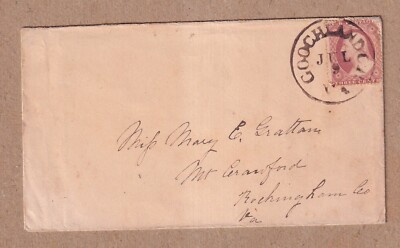 GOOCHLAND C.H.
JUL
9
Va
Miss Mary E. Grattan
Mt Crawford
Rockingham Co
Va